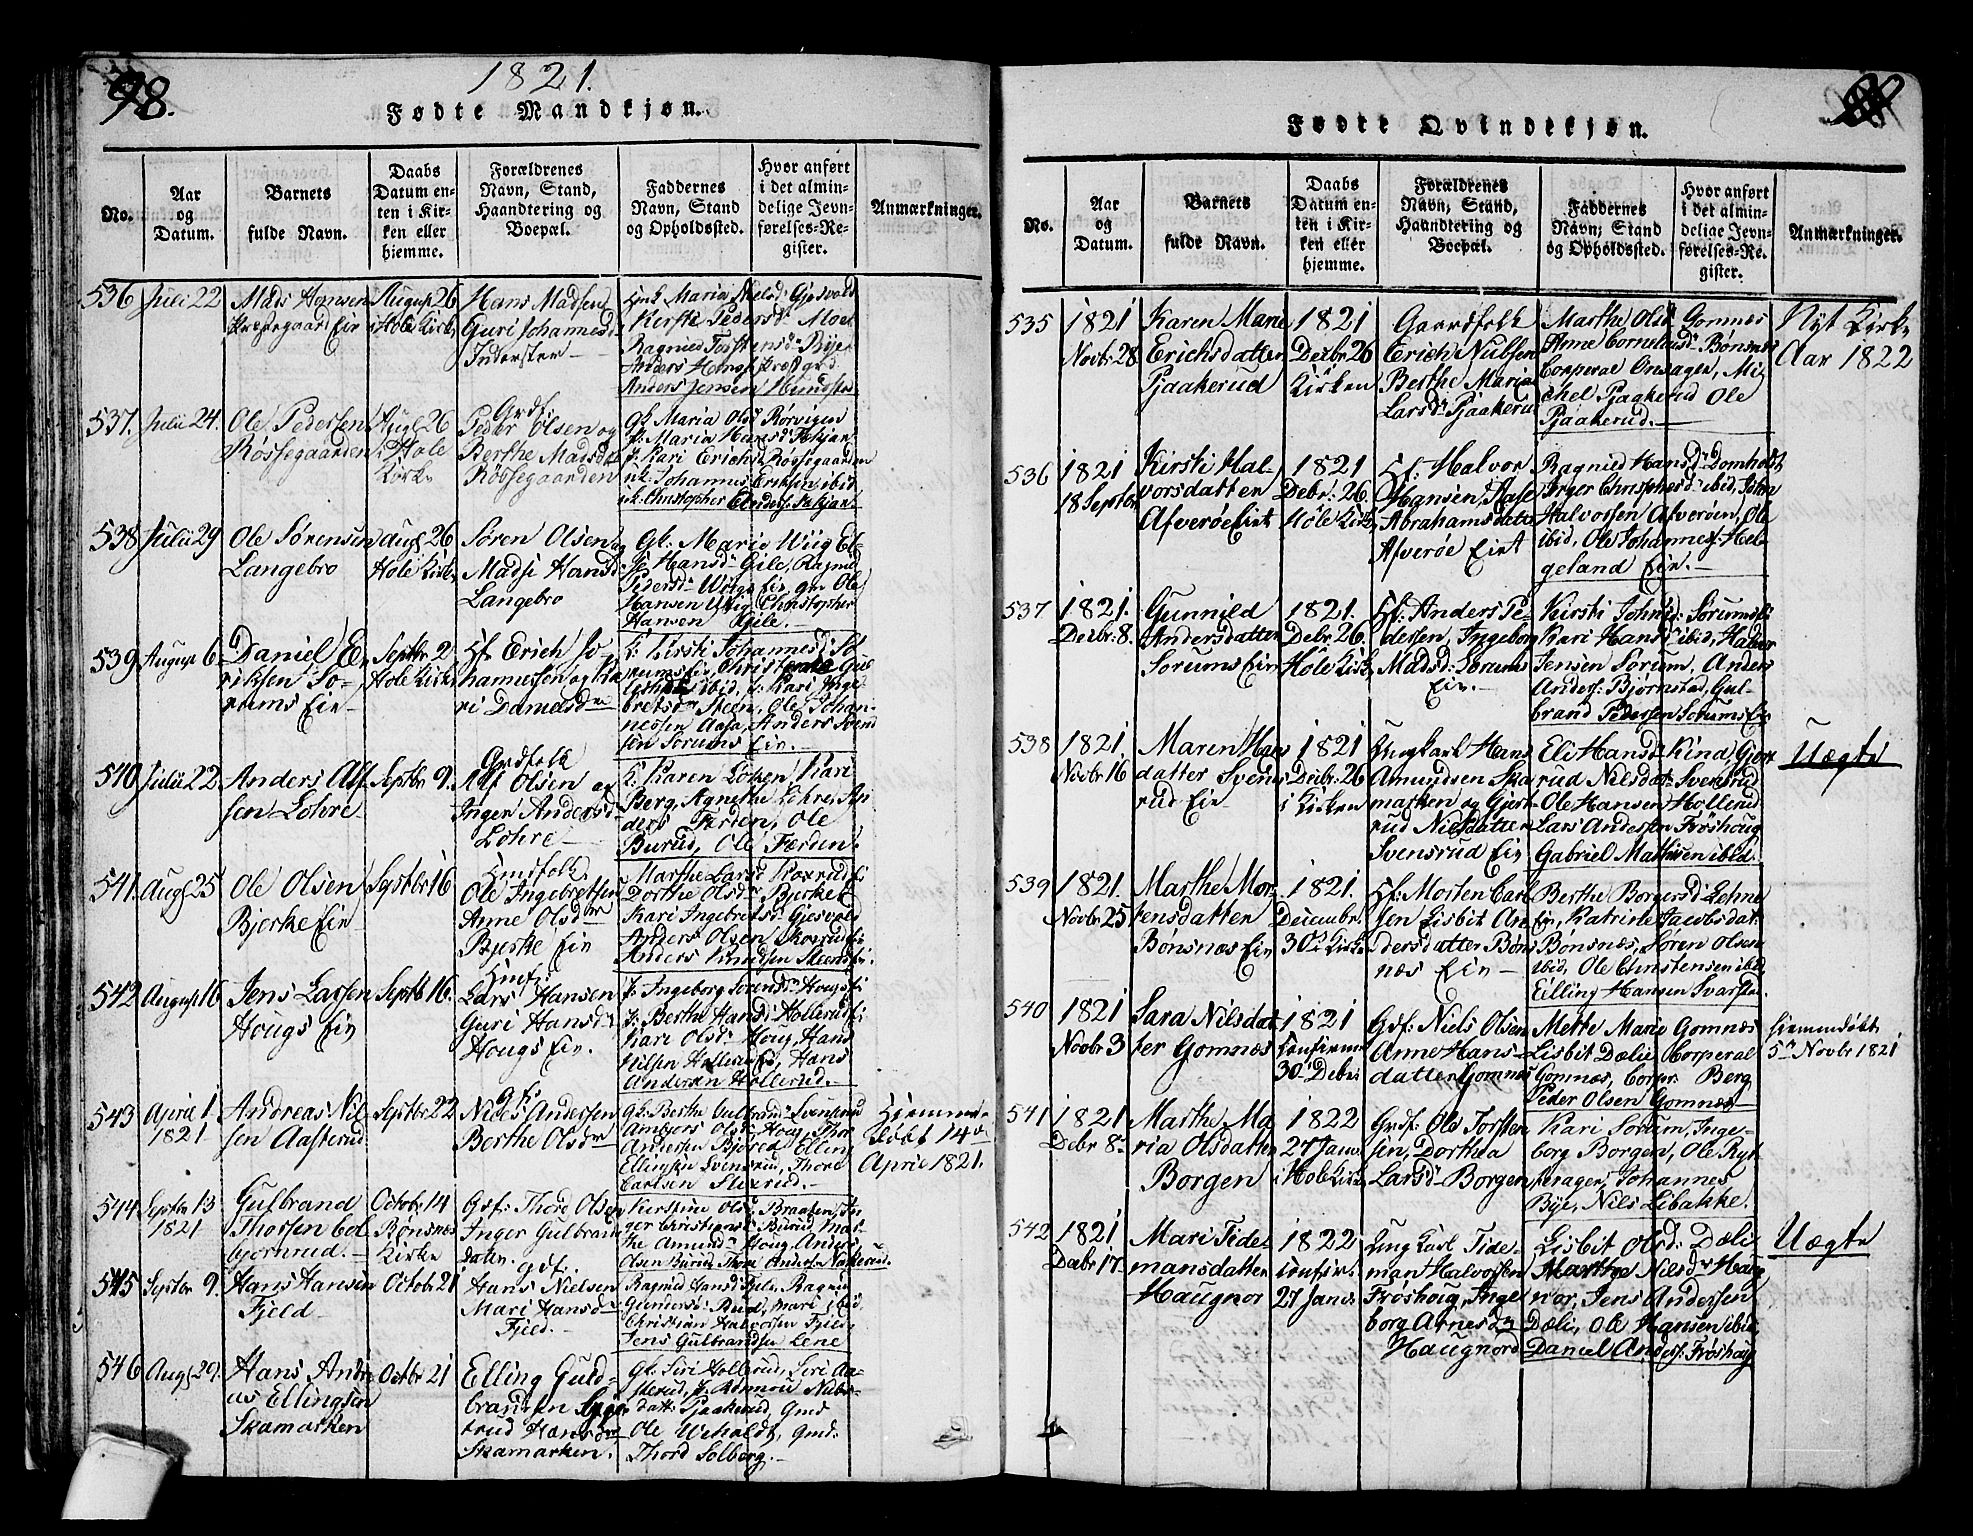 98.
1821.
Fødte Mandkjøn.
No.
Aar
og
Datum.
Barnets
fulde Navn.
Daabs
Datum en-
ten i Kir-
ken eller
hjemme.
Forældrenes
Navn, Stand,
Haandtering og
Boepæl.
Faddernes
Navn, Stand
og Opholdssted.
Hvor anført
i det almin-
delige Jevn-
førelses-Re-
gister.
Anmærkninger.
536
Juli 22
Mads Hansen
Præstegaard Eie
August 26
i Hole Kirke
Hans Madsen
Guri Johannesd:
Inderster
Maria Nielsd: Gjesvold
Kirsti Pedersd: Moe
Ragnild Torstensd: Bye
Anders Hansen
Anders Jensen Hundstad
537.
Julii 24.
Ole Pedersen
Røssegaarden
Aug 26
i Hole
Kirke
Grdf:
Peder Olsen og
Berthe Madsd:
Røssegaarden
Gk: Maria Olsd: Rørvigen
P: Maria Hansd:
P: Kari Erichsd: Røssegaarden
uk: Johannes Eriksen ibid
uk: Christopher
538
Julii 29
Ole Sørensen
Langebro
Aug 26
Hole Kirke
Søren Olsen og
Madsi Hansd:
Langebro
Gk: Marie Wiig
Hansd: Gile, Ragnild
Pedersd: Wiigs Eie, gm Ole
Hansen Wiig, Christopher
Hansen Gile.
539
August 6
Daniel E-
riksen So-
rums Eie
Septbr 2
Hole Kirke
Hf: Erich Jo-
hannessen og Ka-
ri Danielsd:
K: Kirsti Johannesd: So-
rums Eie, Christ
ibid, P: Kari Inge-
bretsd: Steen, Ole Johan-
nessen Aasa, Anders Svend-
sen Sorums Eie.
540
Julii 22
Anders Alf-
sen Lohre
Septbr 9.
Grdfolk
Alf Olsen og
Inger Andersd:
Lohre
K: Karen Lohre, Kari
Berg, Agnethe Lohre, An-
ders Færden, Ole
Burud, Ole Færden.
541.
Aug 25
Ole Olsen
Bjerke Eie
Septbr 16
Hmsfolk
Ole Ingebretsen
Anne Olsdtr
Bjerke Eie
Marthe Larsd:
Dorthe Olsd: Bjerke
Kari Ingebretsd: Gjesvold
Anders Olsen
Anders Knudsen
542
August 16
Jens Larsen
Hougs Eie
Septbr 16.
Hmf:
Lars Hansen
Guri Hansd:
Hougs Eie.
P: Ingeborg Hougs Eie
P: Berthe Hansd: Hollerud
Kari Olsd: Houg, Hans
Nilsen Hollerud, Hans
Andersen Hollerud.
543
April 1.
1821
Andreas Nil-
sen Aasterud
Septbr 22
gf:
Niels Andersen
Berthe Olsdtr
gk: Berthe Gulbrandsd: Svensrud
Ambjørs Olsd: Houg, Thor
Andersen Bjørud, Elling
Ellingsen Svensrud, Thore
Carlsen
Hjemme-
døbt 14de
April 1821.
544
Septbr 13
1821
Gulbrand
Thorsen Col-
bjørnrud.
Octobr 14
Bønsnæs
Kirke
Gdf: Thore Olsen
Inger Gulbrands-
datter.
Kirstine Olsd: Braaten, In-
ger Christiansd: Burud, Mar-
the Amundsd: Houg, Anders
Olsen Burud, Thore Andersen
545
Septbr 9.
Hans Hansen
Fjeld
Octobr 21
Gdf:
Hans Nielsen
Mari Hansd:
Fjeld.
Ragnild Hansd: Ragnild
Gundersd: Rud, Mari ibid
Christian Halvorsen Fjeld,
Jens Gulbrandsen Lene
546
Aug 29.
Hans Andre-
as Ellingsen
Skamarken
Octbr 21
Elling Guld-
brandsen
trud Hansdtr
Skamarken.
Gk. Siri Hollerud, Siri Aa-
sterud, P. Rønnou Nubs-
datt: Pjaakerud, Gmd
Ole Wehaldt, Gmd.
Thord Solberg.
Fødte Qvindekjøn.
No.
Aar
og
Datum.
Barnets
fulde Navn.
Daabs
Datum en-
ten i Kir-
ken eller
hjemme.
Forældrenes
Navn, Stand,
Haandtering og
Boepæl.
Faddernes
Navn, Stand
og Opholdssted.
Hvor anført
i det almin-
delige Jevn-
førelses-Re-
gister.
Anmærkninger.
535
1821
Novbr 28
Karen Marie
Erichsdatter
Pjaakerud
1821
Decbr 26
Kirken
Gaardfolk
Erich Nubsen
Berthe Maria
Larsd: Pjaakerud
Marthe Olsd: Gomnæs
Anne Corneliusd: Bønsnæs
Corporal Onsager, Mi-
chel Pjaakerud Ole
Pjaakerud.
Nyt Kirke
Aar 1822
536
1821
18 Septbr
Kirsti Hal-
vorsdatter
Afverøe Eie
1821
Debr: 26.
Hole Kirke
Hf: Halvor
Hansen, Aase
Abrahamsdatter
Afverøe Eie
Ragnild Hansd: Lomholdt
Inger Christophersd: ibid, John
Halvorsen Afverøen, Ole
ibid, Ole Johannes: Hel-
geland Eie.
537
1821.
Decbr: 8.
Gunnild
Andersdatter
Sorums Eie
1821.
Debr 26.
Hole Kirke
Hf: Anders Pe-
dersen, Ingeborg
Madsd: Sorums
Eie.
Kirsti Johnsd: Sorums Ei
Kari Hansd: ibid, Halvor
Jensen Sorum, Anders
Anders: Bjørnstad, Gul-
brand Pedersen Sorums Eie
538
1821.
Novbr 16
Maren Hans-
datter Svens-
rud Eie
1821
Decbr: 26
i Kirken
Ungkarl Hans
Amundsen Ska-
marken og Gjert-
rud Nielsdatter
Svensrud Eie
Eli Hansd: Kina, Gjert-
rud Nilsdat: Svensrud
Ole Hansen Hollerud
Lars Andersen Frøshoug
Gabriel Mathisen ibid.
Uægte
539
1821.
Novbr 25
Marthe Mor-
tensdatter
Bønsnæs Eie
1821.
Decembr.
30 Kirke
Hf: Morten Carl-
sen Lisbit An-
dersdatter Bøns-
næs Eie
Berthe Borgersd: Lehne
Eie, Katrine Jacobsdat:
Bønsnæs, Søren Olsen
ibid, Ole Christensen ibid,
Elling Hansen Svarstad.
540
1821
Novbr 3
Sara Nilsdat-
ter Gomnæs
1821
confirmer
30 Debr:
Gdf: Niels Olsen
Anne Hans-
datter Gomnæs
Mette Marie Gomnæs
Lisbit Dæli, Corperal
Gomnæs, Corpr: Berg
Peder Olsen Gomnæs
Hjemmedøbt
5te Novbr 1821
541
1821
Debr 8
Marthe Ma-
ria Olsdatter
Borgen
1822
27 Janu
i Hole Kirke
Grdf: Ole Torsten-
sen, Dorthea
Larsd: Borgen
Kari Sorum, Inge-
borg Borgen, Ole Ryt-
terager, Johannes
Bye, Nils Libakke.
542
1821
Decbr 17.
Mari Tide-
mansdatter
Haugnor
1822
confir:
27 Janu:
Ung Karl Tide-
man Halvorsen
Frøshoug, Inge-
borg Arnesdtr
Haugnord
Lisbit Olsd: Dæli,
Marthe Nilsdr Haug-
nor, Jens Andersen
Dæli, Ole Hansen ibid,
Daniel Anders: Frøshoug
Uægte